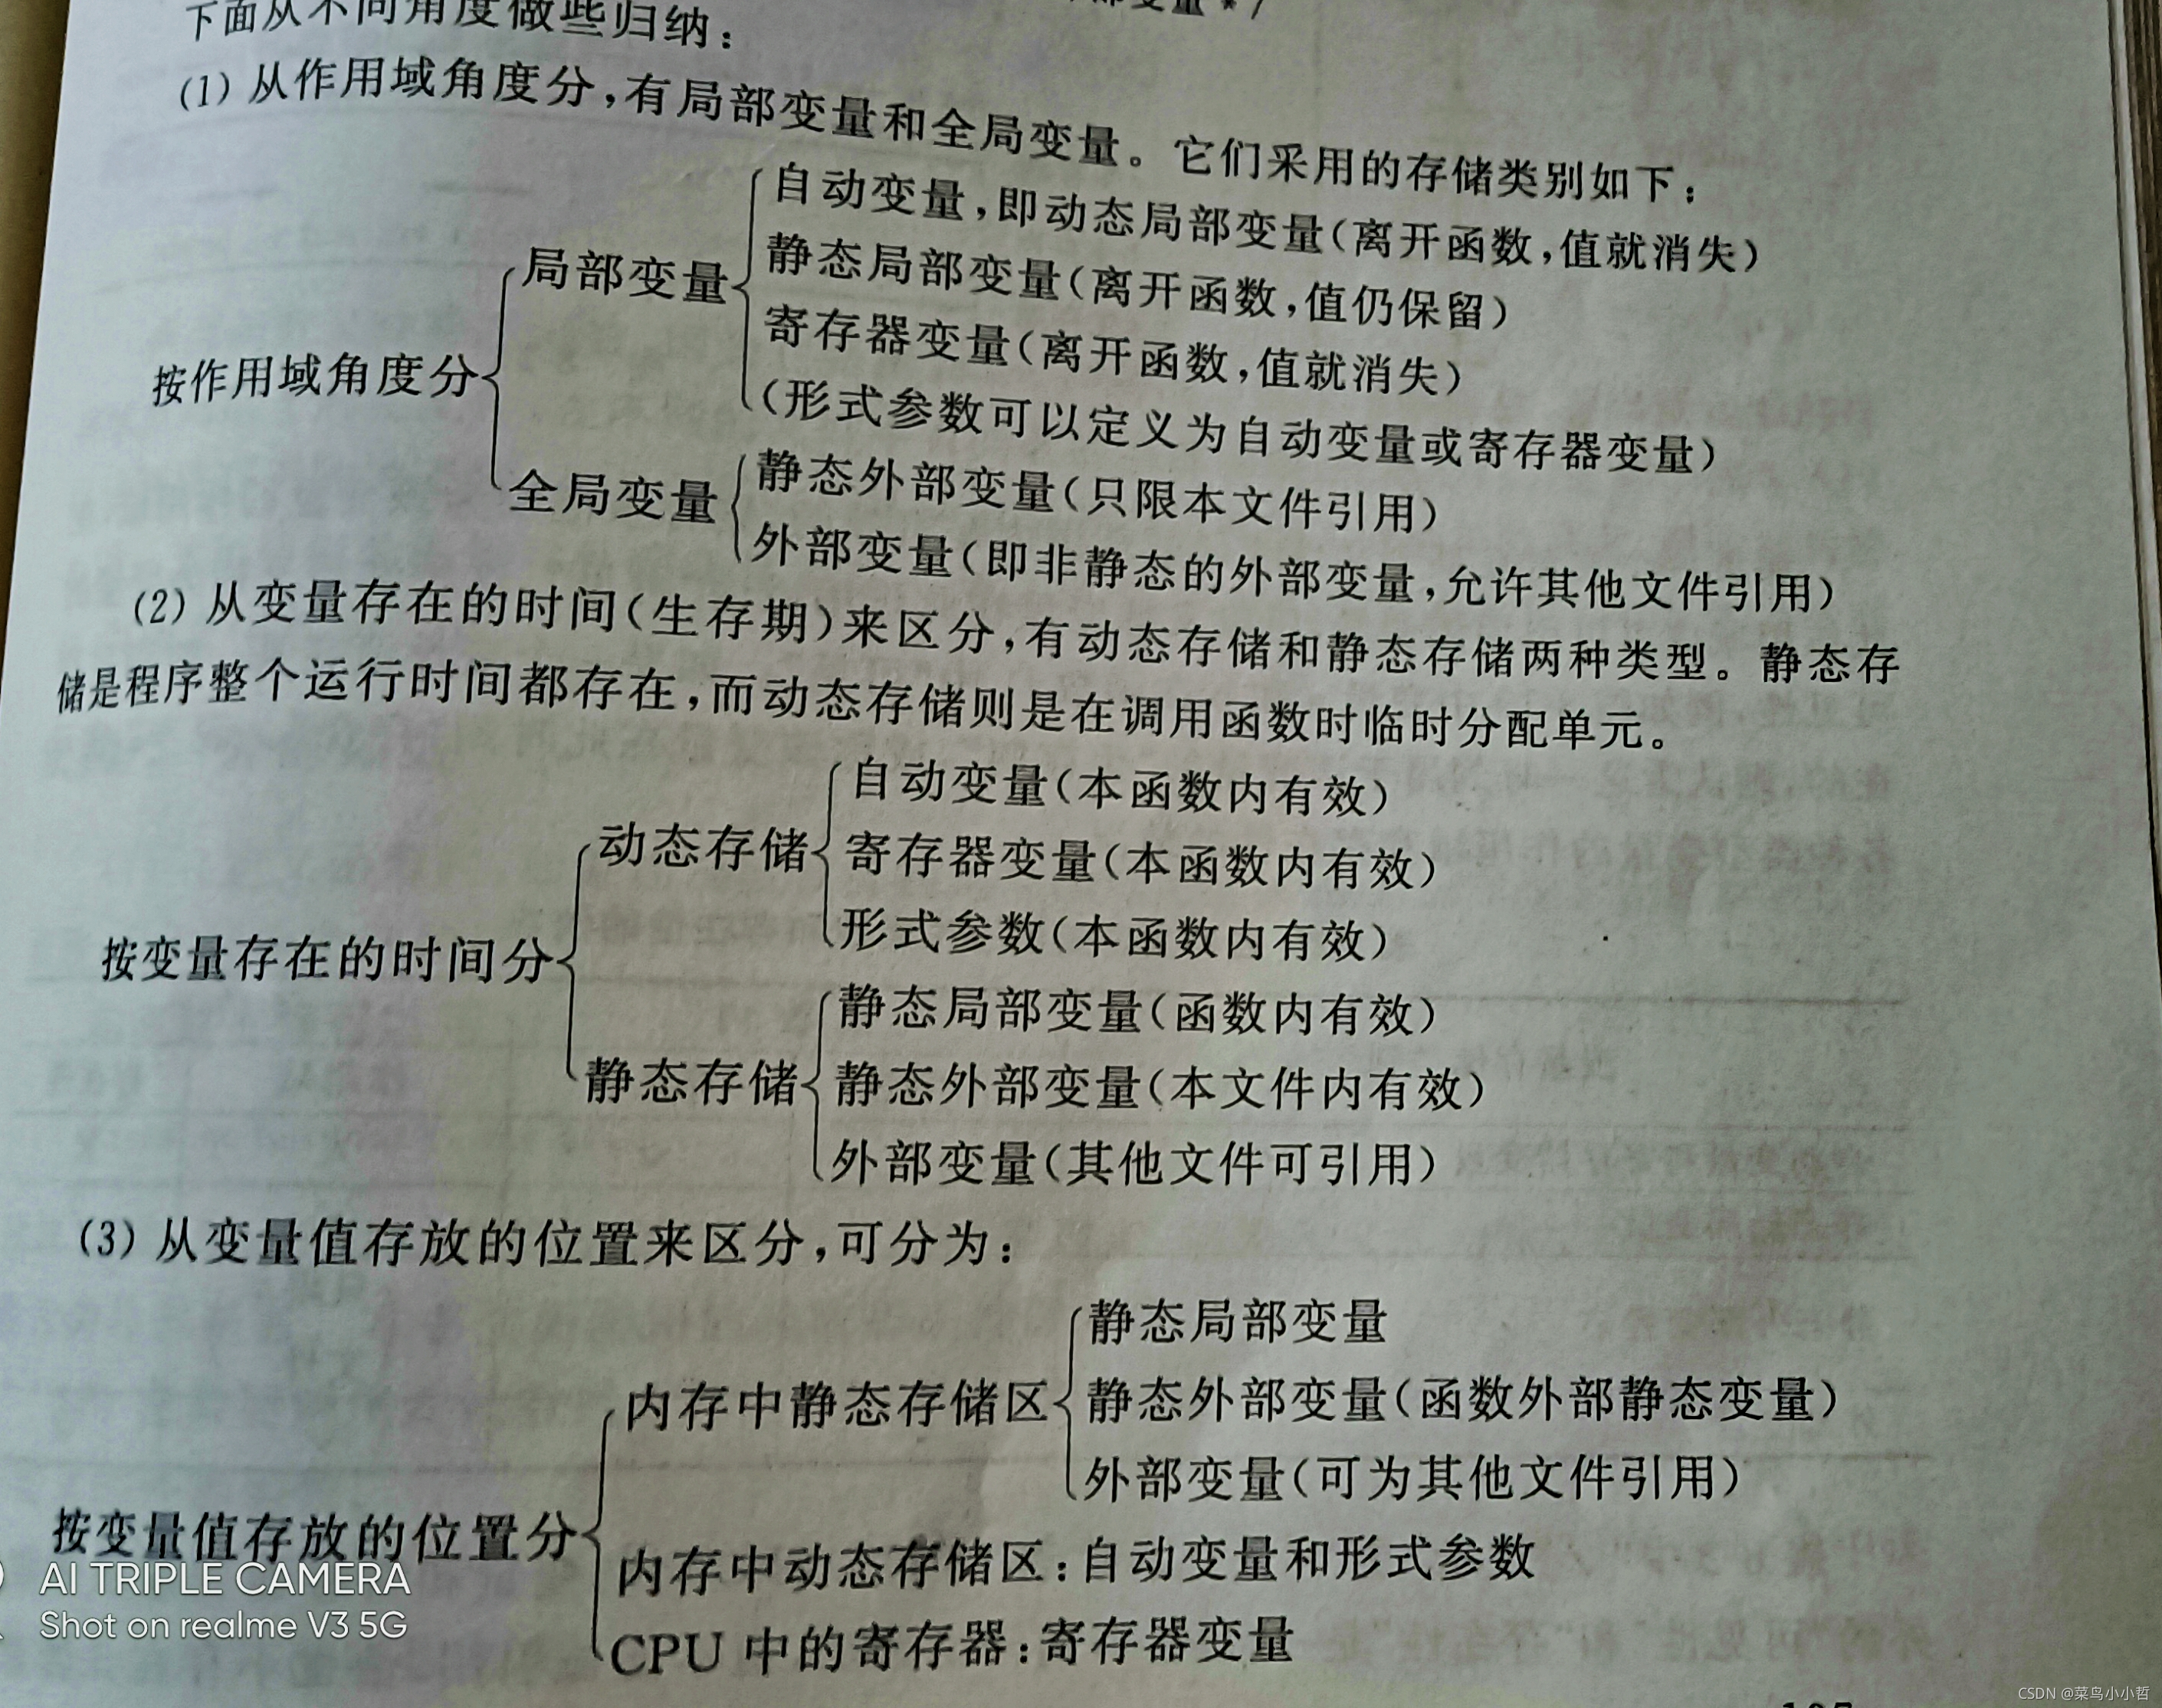 下面从不同角度做些归纳：
(1) 从作用域角度分，有局部变量和全局变量。它们采用的存储类别如下：
自动变量，即动态局部变量(离开函数，值就消失)
静态局部变量(离开函数，值仍保留)
局部变量
寄存器变量(离开函数，值就消失)
(形式参数可以定义为自动变量或寄存器变量)
按作用域角度分
全局变量
静态外部变量(只限本文件引用)
外部变量(即非静态的外部变量，允许其他文件引用)
(2) 从变量存在的时间(生存期)来区分，有动态存储和静态存储两种类型。静态存
储是程序整个运行时间都存在，而动态存储则是在调用函数时临时分配单元。
自动变量(本函数内有效)
动态存储
寄存器变量(本函数内有效)
形式参数(本函数内有效)
按变量存在的时间分
静态局部变量(函数内有效)
静态存储
静态外部变量(本文件内有效)
外部变量(其他文件可引用)
(3) 从变量值存放的位置来区分，可分为：
静态局部变量
内存中静态存储区
静态外部变量(函数外部静态变量)
外部变量(可为其他文件引用)
按变量值存放的位置分
内存中动态存储区：自动变量和形式参数
CPU 中的寄存器：寄存器变量
AI TRIPLE CAMERA
Shot on realme V3 5G
CSDN @菜鸟小小哲